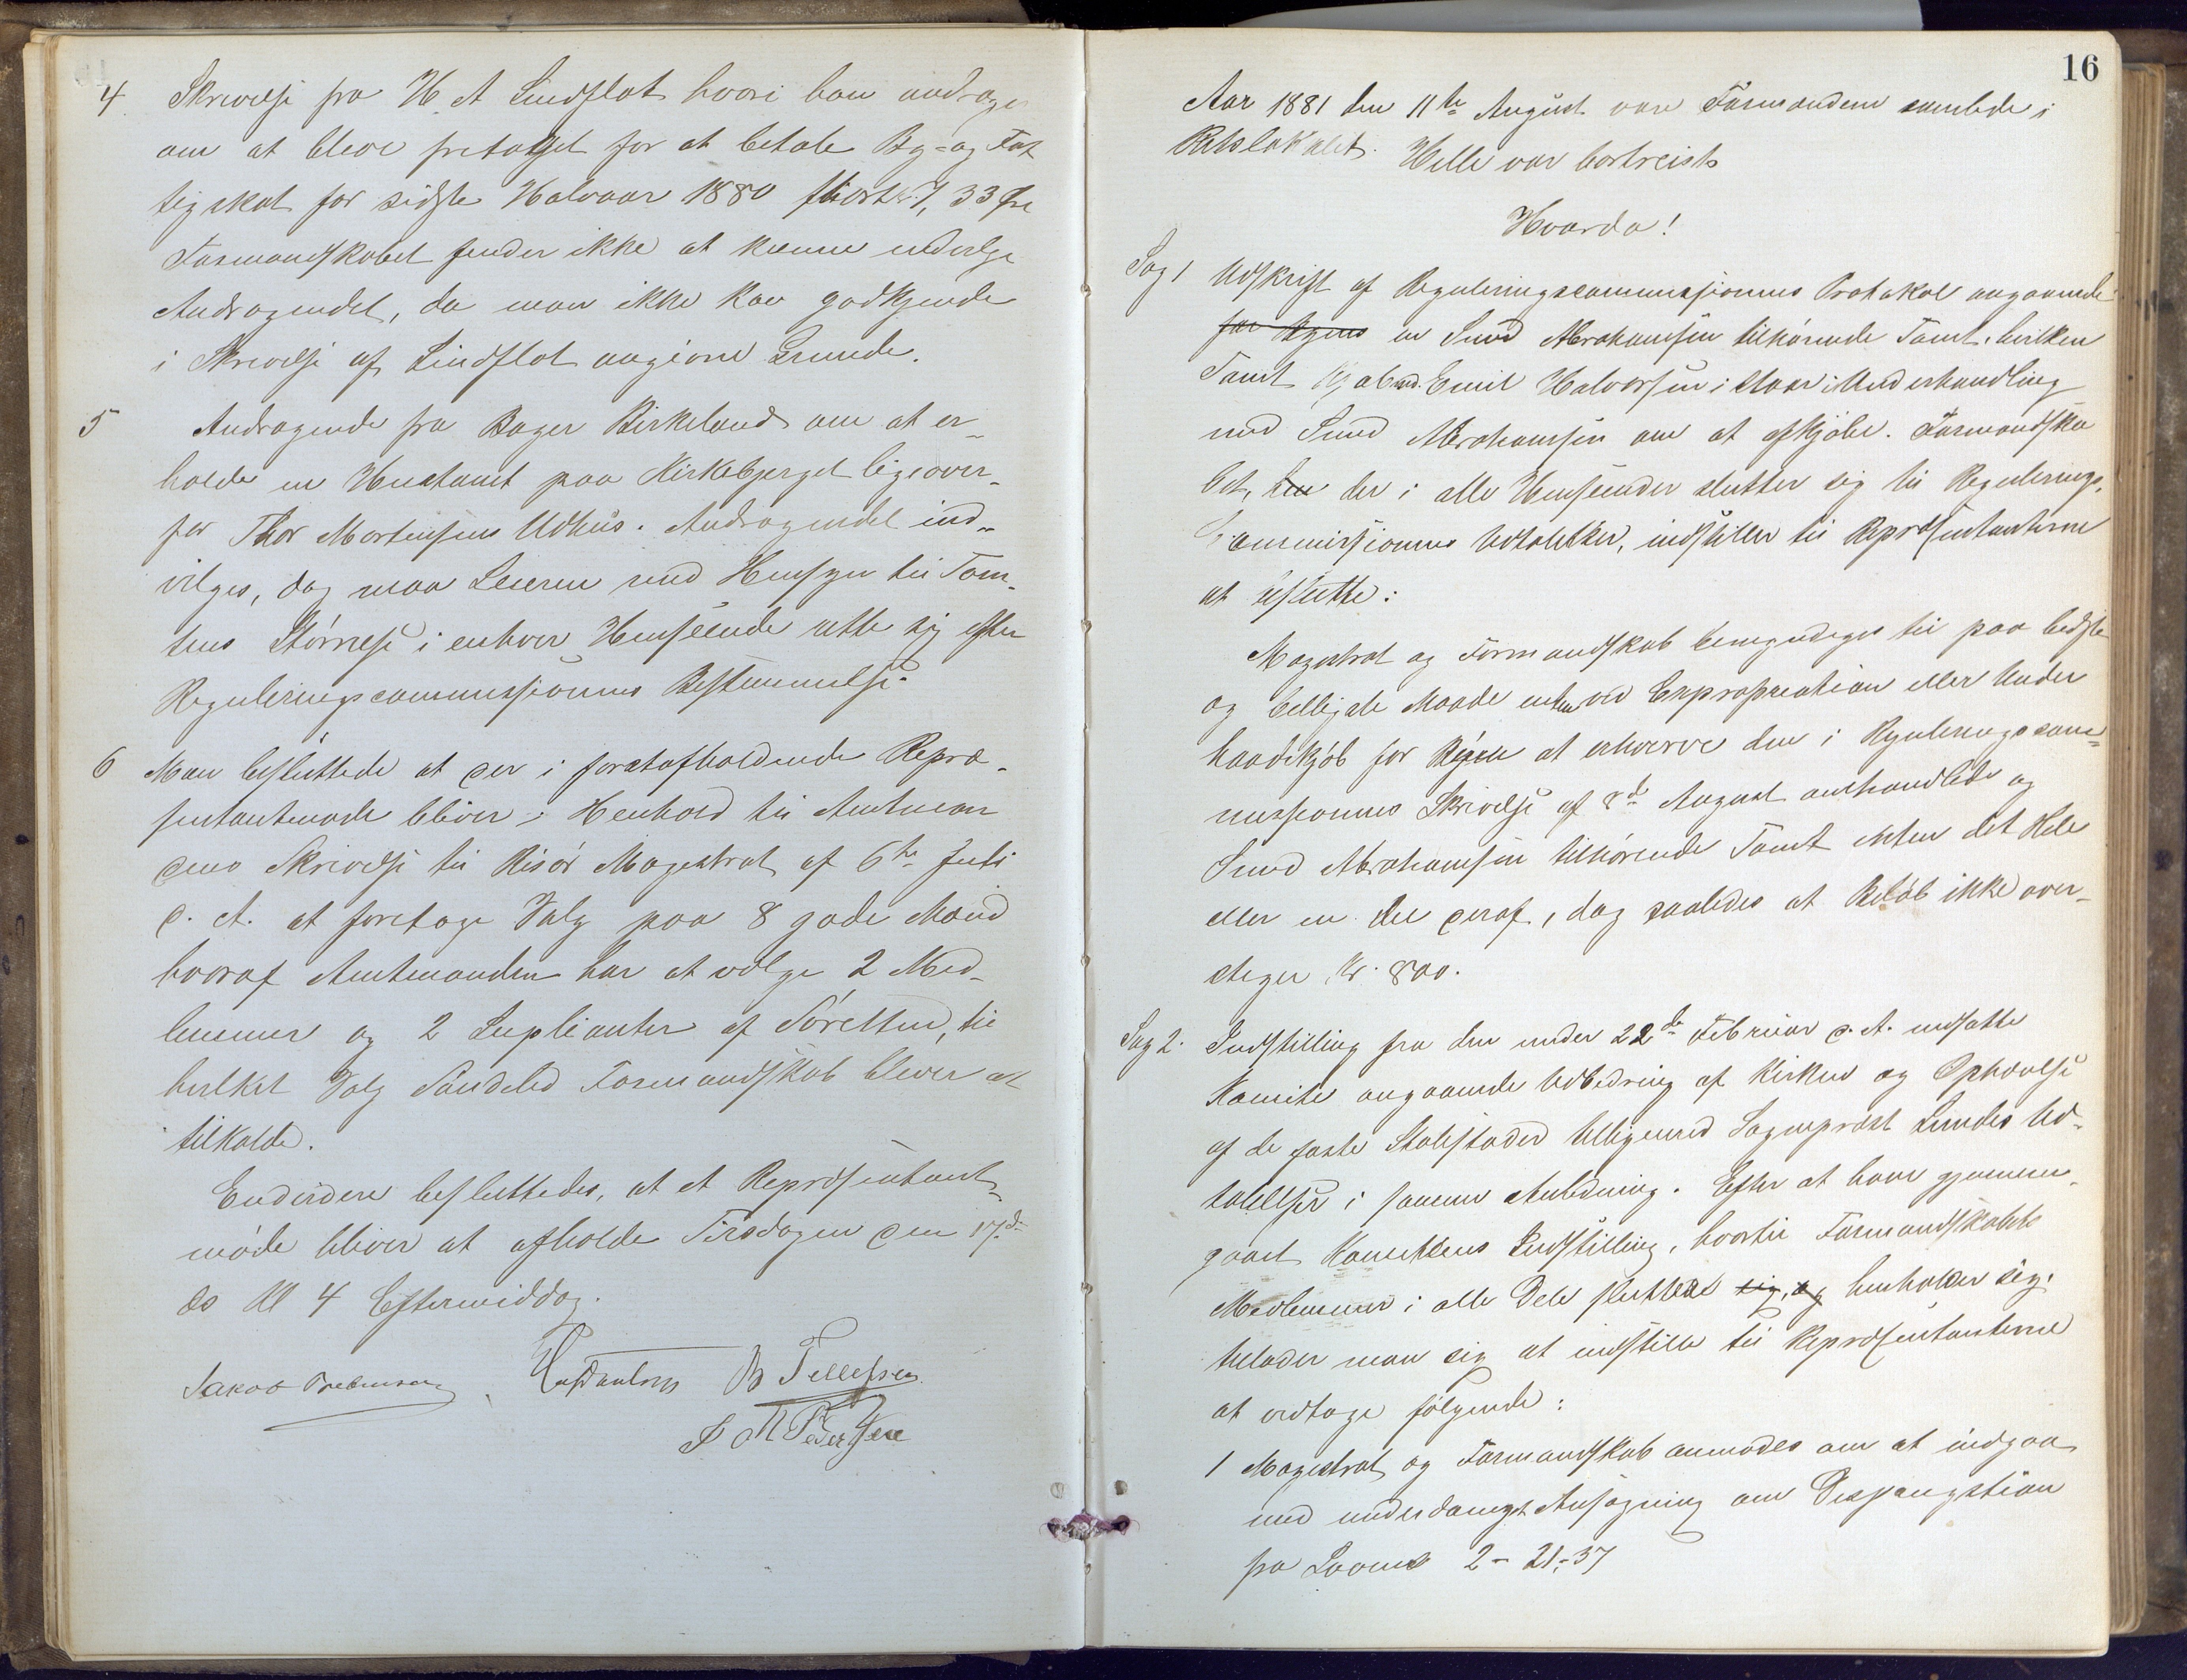 4 Skrivelse fra H A Lindflot hvori han andrager
om at blive fritaget for at betale By- og Fat
tigskat for sidste Halvaar 1880 7,33 Øre
Formandskabet finder ikke at kunne indvilge
Andragendet, da man ikke kan godkjende
i Skrivelse af Lindflot angivne Grunde.
5 Andragende fra Bager Birkeland om at er-
holde en Hustomt paa Kirkebjerget ligeover-
for Thor Mortensens Udhus. Andragendet ind-
vilges, dog maa Leieren med Hensyn til Tom-
tens Størrelse i enhver Henseende rette sig efter
Reguleringscommissionens Bestemmelse.
6 Man besluttede at der i førstafholdende Repræ-
sentantmøde bliver i Henhold til Amtman
dens Skrivelse til Risør Magistrat af 6te Juli
d. A. at foretage Valg paa 8 gode Mænd
hvoraf Amtmanden har at vælge 2 Med-
lemmer og 2 Suplianter af Søretten, til
hvilket Valg Søndeled Formandskab bliver at
tilkalde.
Endvidere besluttedes, at et Repræsentant-
møde bliver at afholde Tirsdagen den 17de
ds Kl 4 Eftermiddag.
Jakob Prebensen B Tellefsen
S M Pedersen
16
Aar 1881 den 11te August vare Formændene samlede i
Retslokalet. Helle var bortreist
Hvorda!
Sag 1 Udskrift af Reguleringscommissionens Protokol angaaende
for Byens en Svend Abrahamsen tilhørende Tomt, hvilken
Tomt Emil Halvorsen i staar i Underhandling
med Svend Abrahamsen om at afkjøbe. Formandska
bet, der i alle Henseender slutter sig til Regulerings-
Commissionens Udtalelser, indstiller til Repræsentanterne
at beslutte:
Magistrat og Formandskab bemyndiges til paa bedste
og billigste Maade enten ved Expropriation eller Under
haandskjøb for Byen at erhverve den i Reguleringscom-
missionens Skrivelse af 8de August omhandlede og
Svend Abrahamsen tilhørende Tomt enten det Hele
eller en del deraf, dog saaledes at Beløb ikke over-
stiger Kr. 800.
Sag 2. Indstilling fra den under 22de Februar d. A. nedsatte
Komite angaaende Udbedring af Kirken og Ophævelse
af de faste Stolestader tilligemed Sogneprest Lundes Ud-
talelser i samme Anledning. Efter at have gjennem-
gaaet Komiteens Indstilling, hvortil Formandskabets
Medlemmer i alle Dele sluttede sig, og henholder sig,
tillader man sig at indstille til Repræsentanterne
at vedtage følgende:
1 Magistrat og Formandskab anmodes om at indgaa
med underdanigst Ansøgning om Dispensation
fra Lovens 2 - 21-37